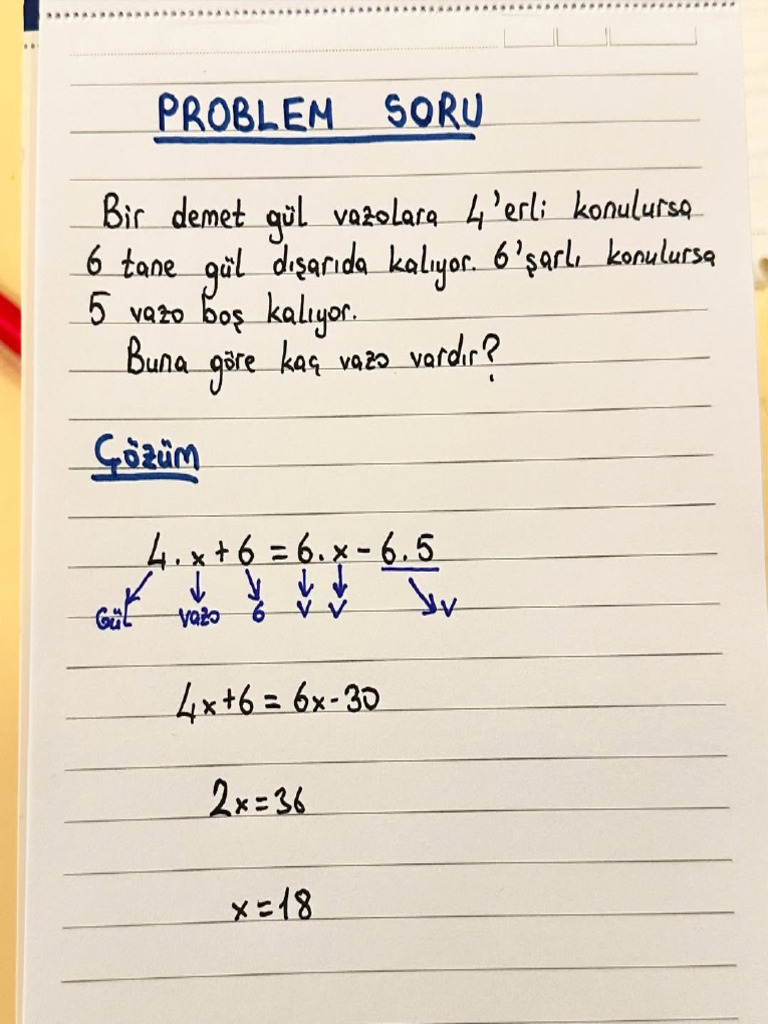 PROBLEM SORU
Bir demet gül vazolara 4'erli konulursa
6 tane gül dışarıda kalıyor. 6'şarlı konulursa
5 vazo boş kalıyor.
Buna göre kaç vazo vardır?
Çözüm
4.x+6=6.x-6.5
Gül vazo 6 V V V
4x+6=6x-30
2x=36
x=18